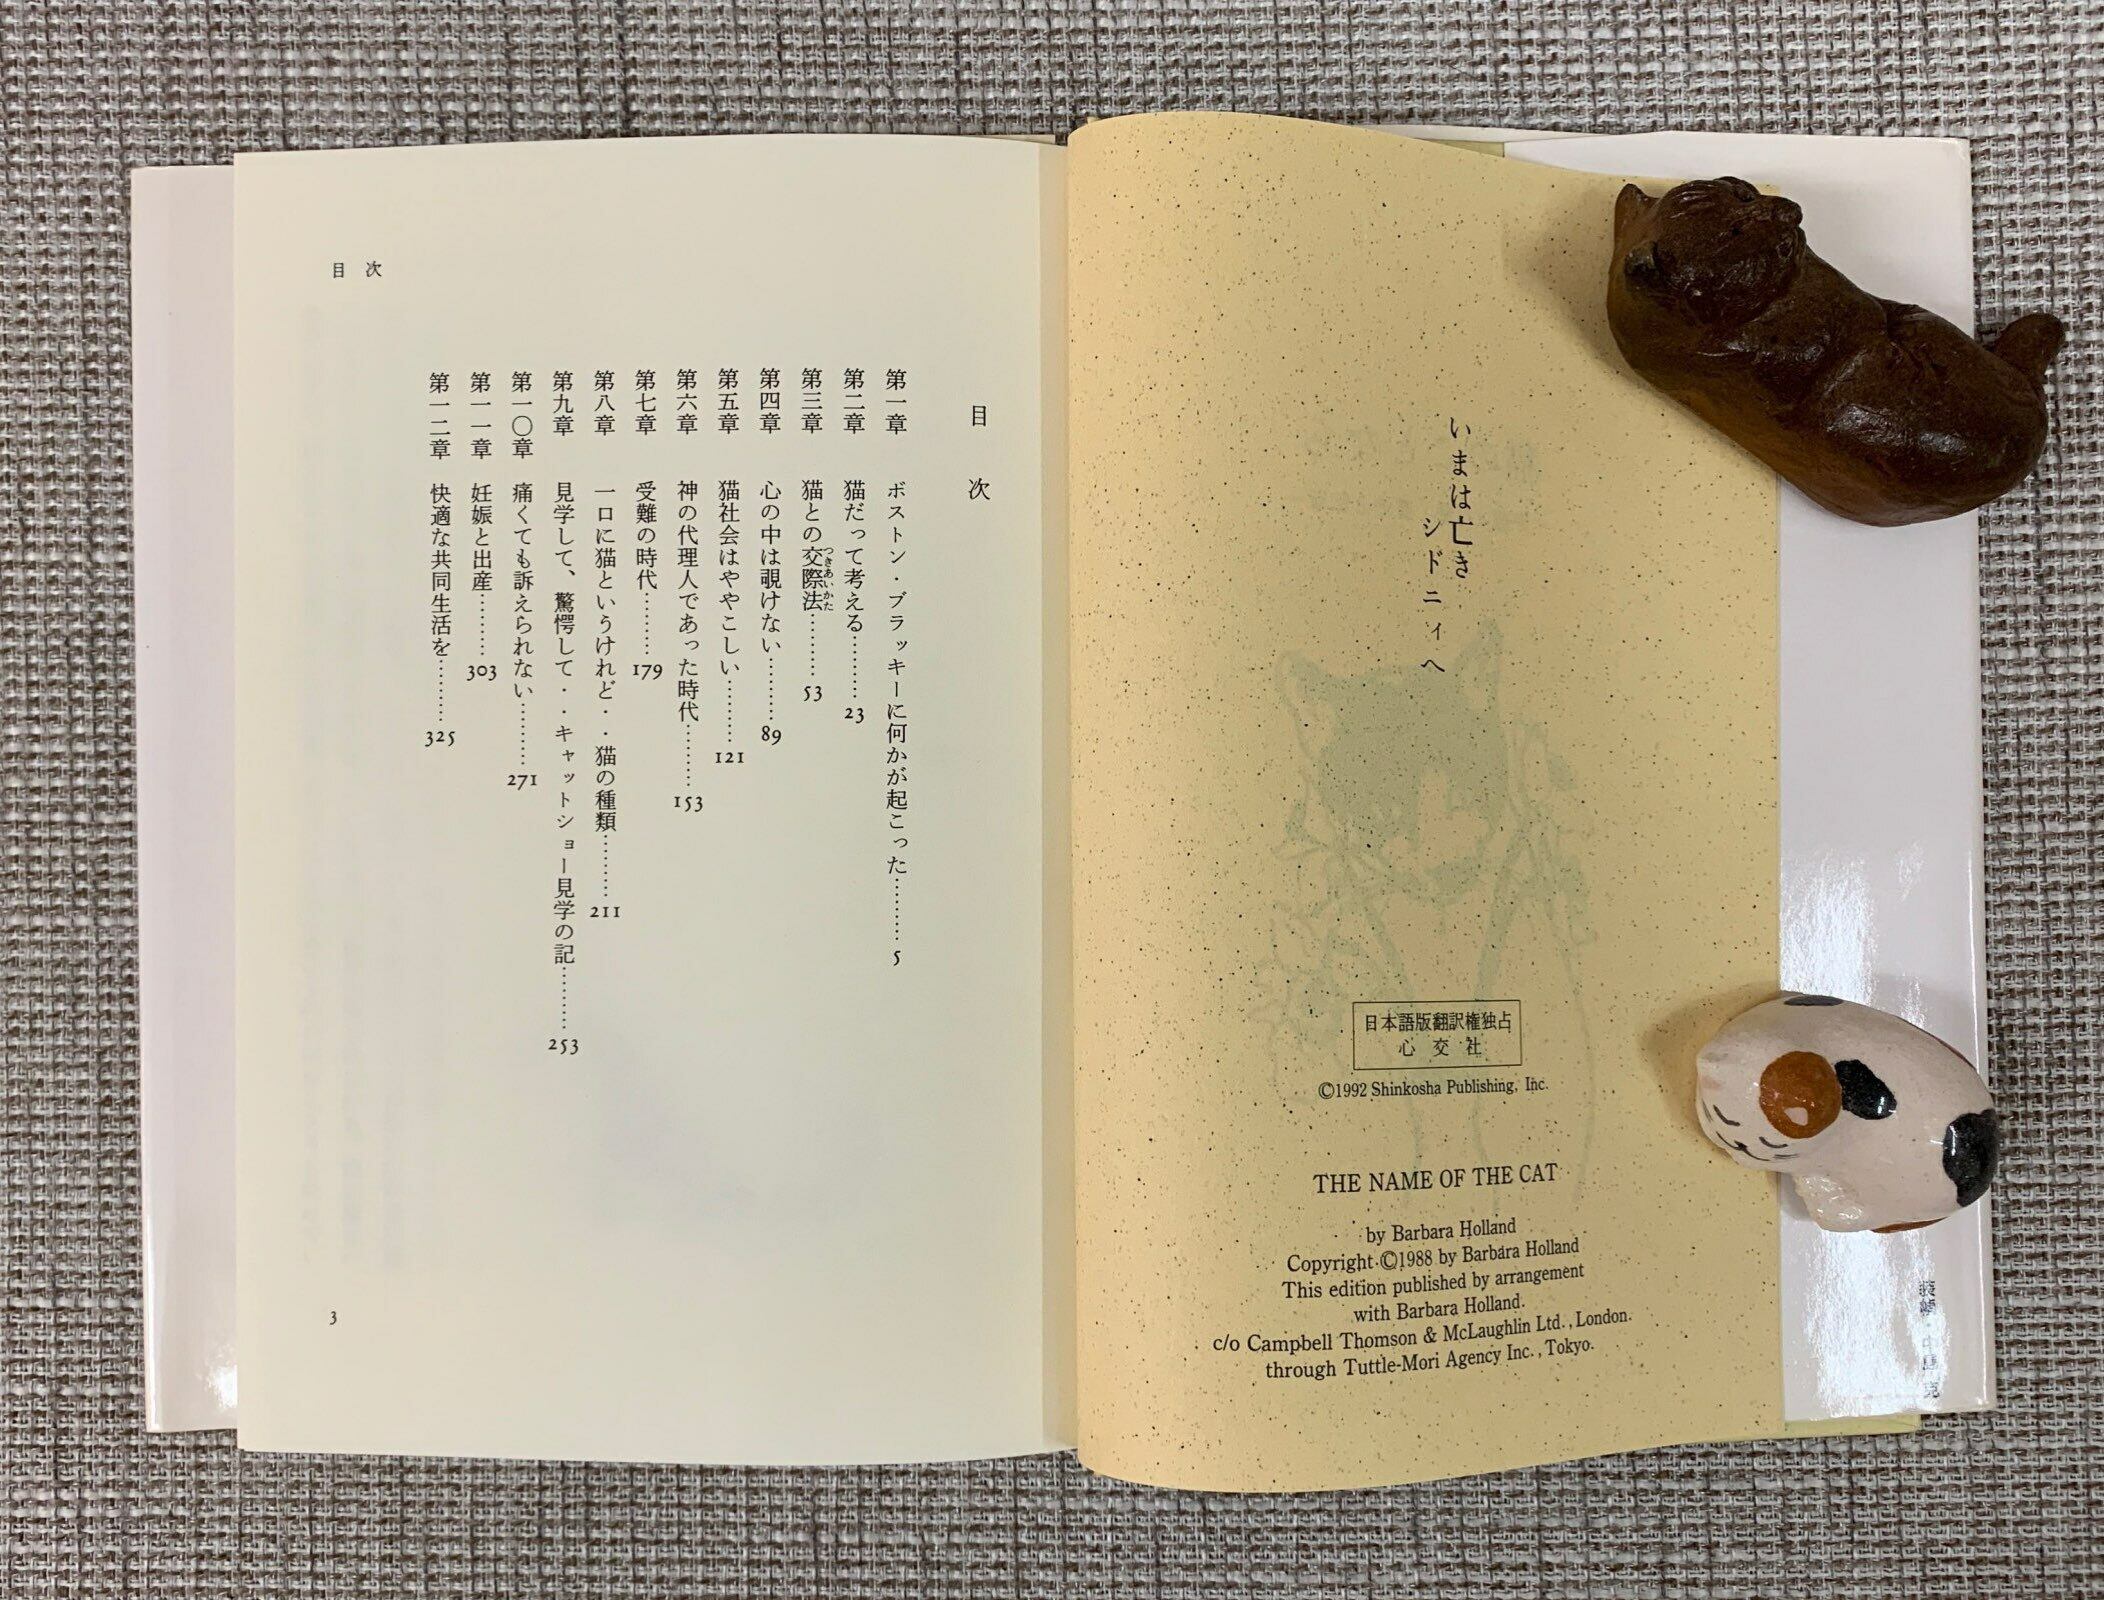 いまは亡き
シドニィへ
日本語版翻訳権独占
心交社
©1992 Shinkosha Publishing, Inc.
THE NAME OF THE CAT
by Barbara Holland
Copyright ©1988 by Barbara Holland
This edition published by arrangement
with Barbara Holland.
c/o Campbell Thomson & McLaughlin Ltd., London.
through Tuttle-Mori Agency Inc., Tokyo.
目次
目次
第一章 ボストン・ブラッキーに何かが起こった………… 5
第二章 猫だって考える………… 23
第三章 猫との交際法つきあいかた………… 53
第四章 心の中は覗けない………… 89
第五章 猫社会はややこしい………… 121
第六章 神の代理人であった時代………… 153
第七章 受難の時代………… 179
第八章 一口に猫というけれど・・猫の種類………… 211
第九章 見学して、驚愕して・・キャットショー見学の記………… 253
第一〇章 痛くても訴えられない………… 271
第一一章 妊娠と出産………… 303
第一二章 快適な共同生活を………… 325
3